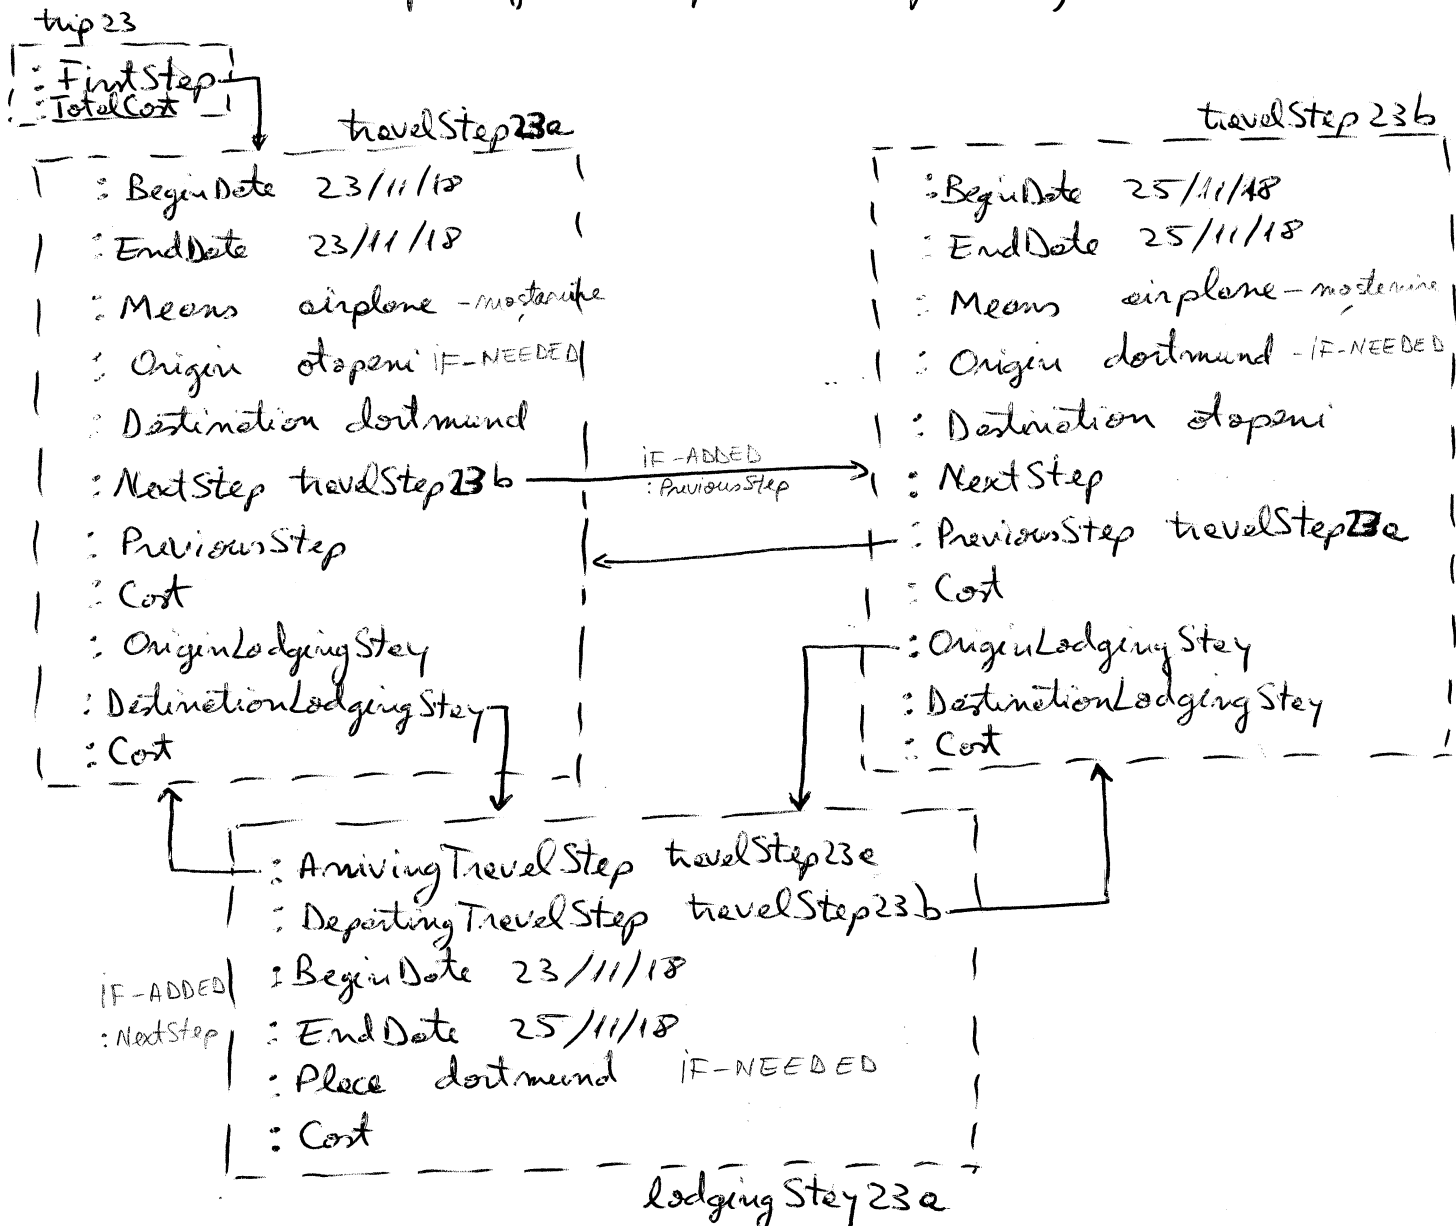 trip23
: FirstStep
: TotalCost
travelStep23a
: BeginDate 23/11/18
: EndDate 23/11/18
: Means airplane - moștenire
: Origin otopeni IF-NEEDED
: Destination dortmund
: NextStep travelStep23b
: PreviousStep
: Cost
: OriginLodgingStay
: DestinationLodgingStay
: Cost
IF-ADDED
: PreviousStep
travelStep23b
: BeginDate 25/11/18
: EndDate 25/11/18
: Means airplane - moștenire
: Origin dortmund - IF-NEEDED
: Destination otopeni
: NextStep
: PreviousStep travelStep23a
: Cost
: OriginLodgingStay
: DestinationLodgingStay
: Cost
: ArrivingTravelStep travelStep23a
: DepartingTravelStep travelStep23b
: BeginDate 23/11/18
: EndDate 25/11/18
: Place dortmund IF-NEEDED
: Cost
IF-ADDED
: NextStep
lodgingStay23a